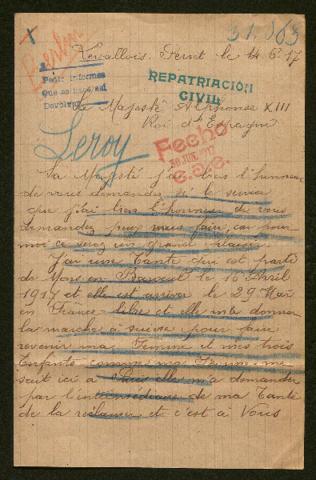 31.863
Berlin
Levallois-Perret le 14.6.17
Pedir informes
Que se
Devolver
REPATRIACIÓN
CIVIL
Sa Majesté Alphonse XIII
Roi d'Espagne
Fecho
30 JUN. 1917
Leroy
Sa Majesté j'ai bien l'honneur
de vous demandez si le service
que j'ai bien l'honneur de vous
demandez peux mes faire, car pour
moi ce serez un grand plaisir
J'ai une Tante qui est partie
de Mons en le 16 Avril
1917 et elle est arriver le 29 Mai
en France libre et elle m'a donner
la marche a suivre pour faire
revenir ma Femme et mes trois
Enfants comme ma Femme me
sait ici a Paris elle m'a demander
par l'intermédiaire de ma Tante
de la réclamer et c'est à Vous